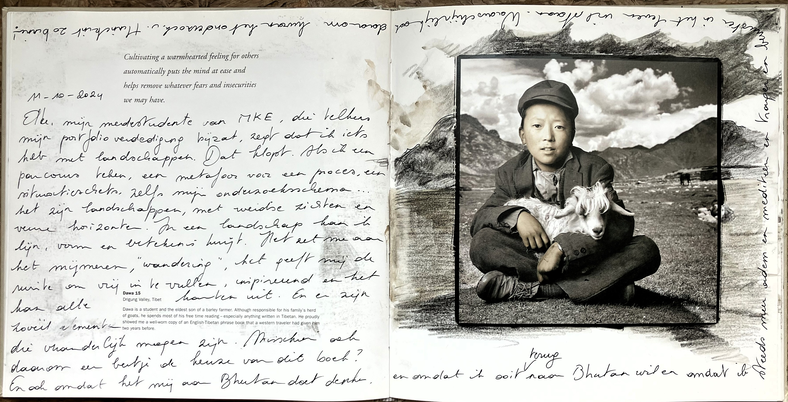 daarom kwam het onderzoek
Cultivating a warmhearted feeling for others
automatically puts the mind at ease and
helps remove whatever fears and insecurities
we may have.
11-10-2024
mijn medestudente van MKE, die telkens
mijn portfolioverdediging bijzat, zegt dat ik iets
heb met landschappen. Dat klopt. Als ik een
parcours teken, een metafoor voor een proces, een
situatieschets, zelfs mijn onderzoeksschema...
het zijn landschappen, met weidse zichten en
verre horizonten. In een landschap kan ik
lijn, vorm en betekenis kwijt. Het zet me aan
het mijmeren, "wandering", het geeft mij de
ruimte om vrij in te vullen, inspirerend en het
kan alle kanten uit. En er zijn
zoveel elementen
Dawa 15
Drigung Valley, Tibet
Dawa is a student and the eldest son of a barley farmer. Although responsible for his family's herd
of goats, he spends most of his free time reading - especially anything written in Tibetan. He proudly
showed me a well-worn copy of an English-Tibetan phrase book that a western traveler had given him
two years before.
die veranderlijk mogen zijn. Misschien ook
daarom een beetje de keuze van dit boek?
En ook omdat het mij aan Bhutan doet denken.
terug
en omdat ik ooit naar Bhutan wil en omdat ik
steeds meer adem en mediteer en
in het leven wil staan. Waarschijnlijk ook